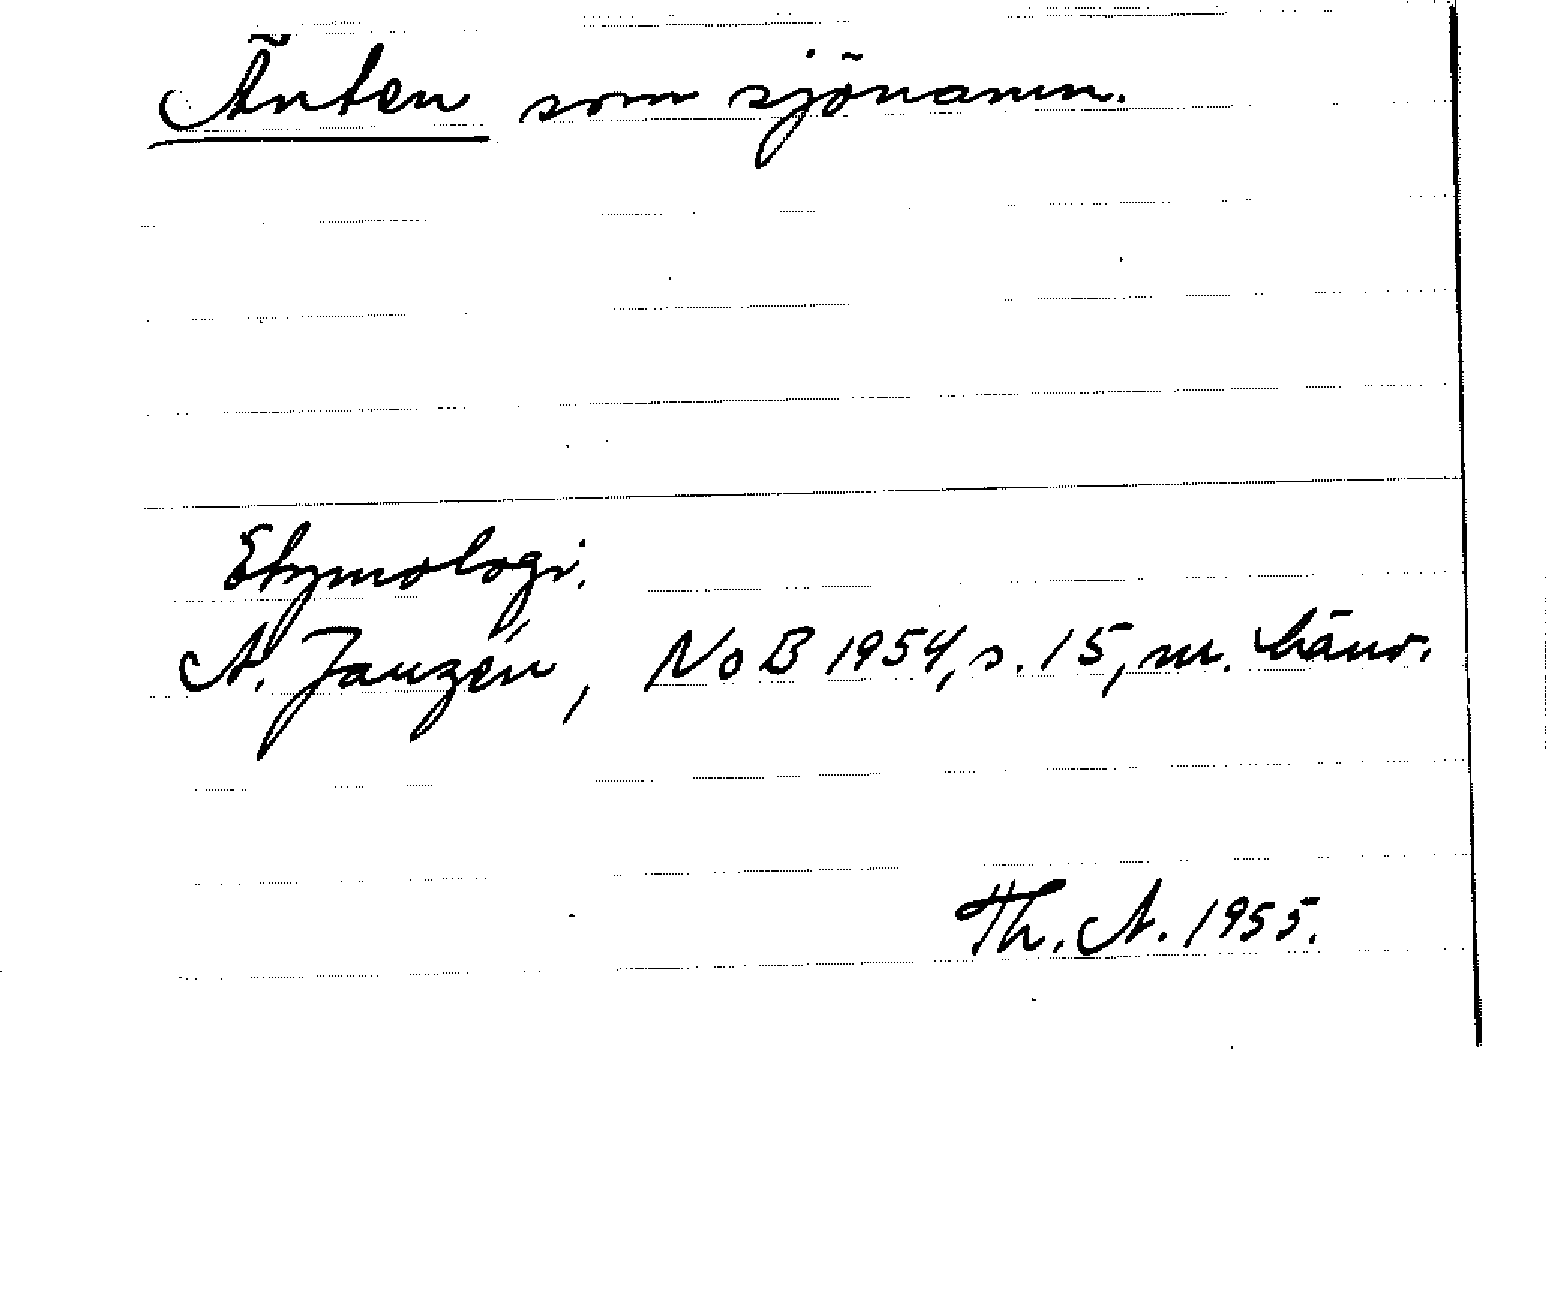 Änten som sjönamn.
Etymologi.
A. Janzén, NoB 1954, s. 15, m. hänv.
Th. A. 1955.